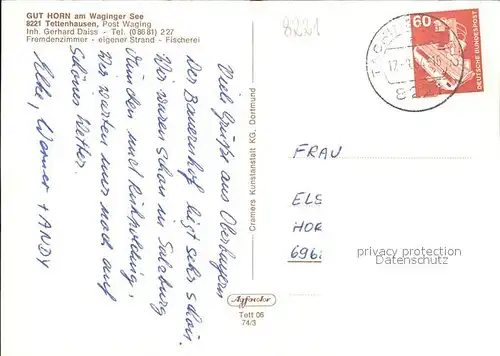 GUT HORN am Waginger See
8221 Tettenhausen, Post Waging
Inh. Gerhard Daiss - Tel. (08681) 227
Fremdenzimmer - eigener Strand - Fischerei
8221
60
DEUTSCHE BUNDESPOST
Viele Grüße aus Oberbayern
Der Bauernhof liegt sehr schön.
Wir waren schon in Salzburg
München und Ruhpolding.
Wir warten nur noch auf
Schönes Wetter.
Elke, Werner + ANDY
Cramers Kunstanstalt KG, Dortmund
FRAU
ELS
HOR
696
privacy protection
Datenschutz
Agfacolor
Tett 06
74/3